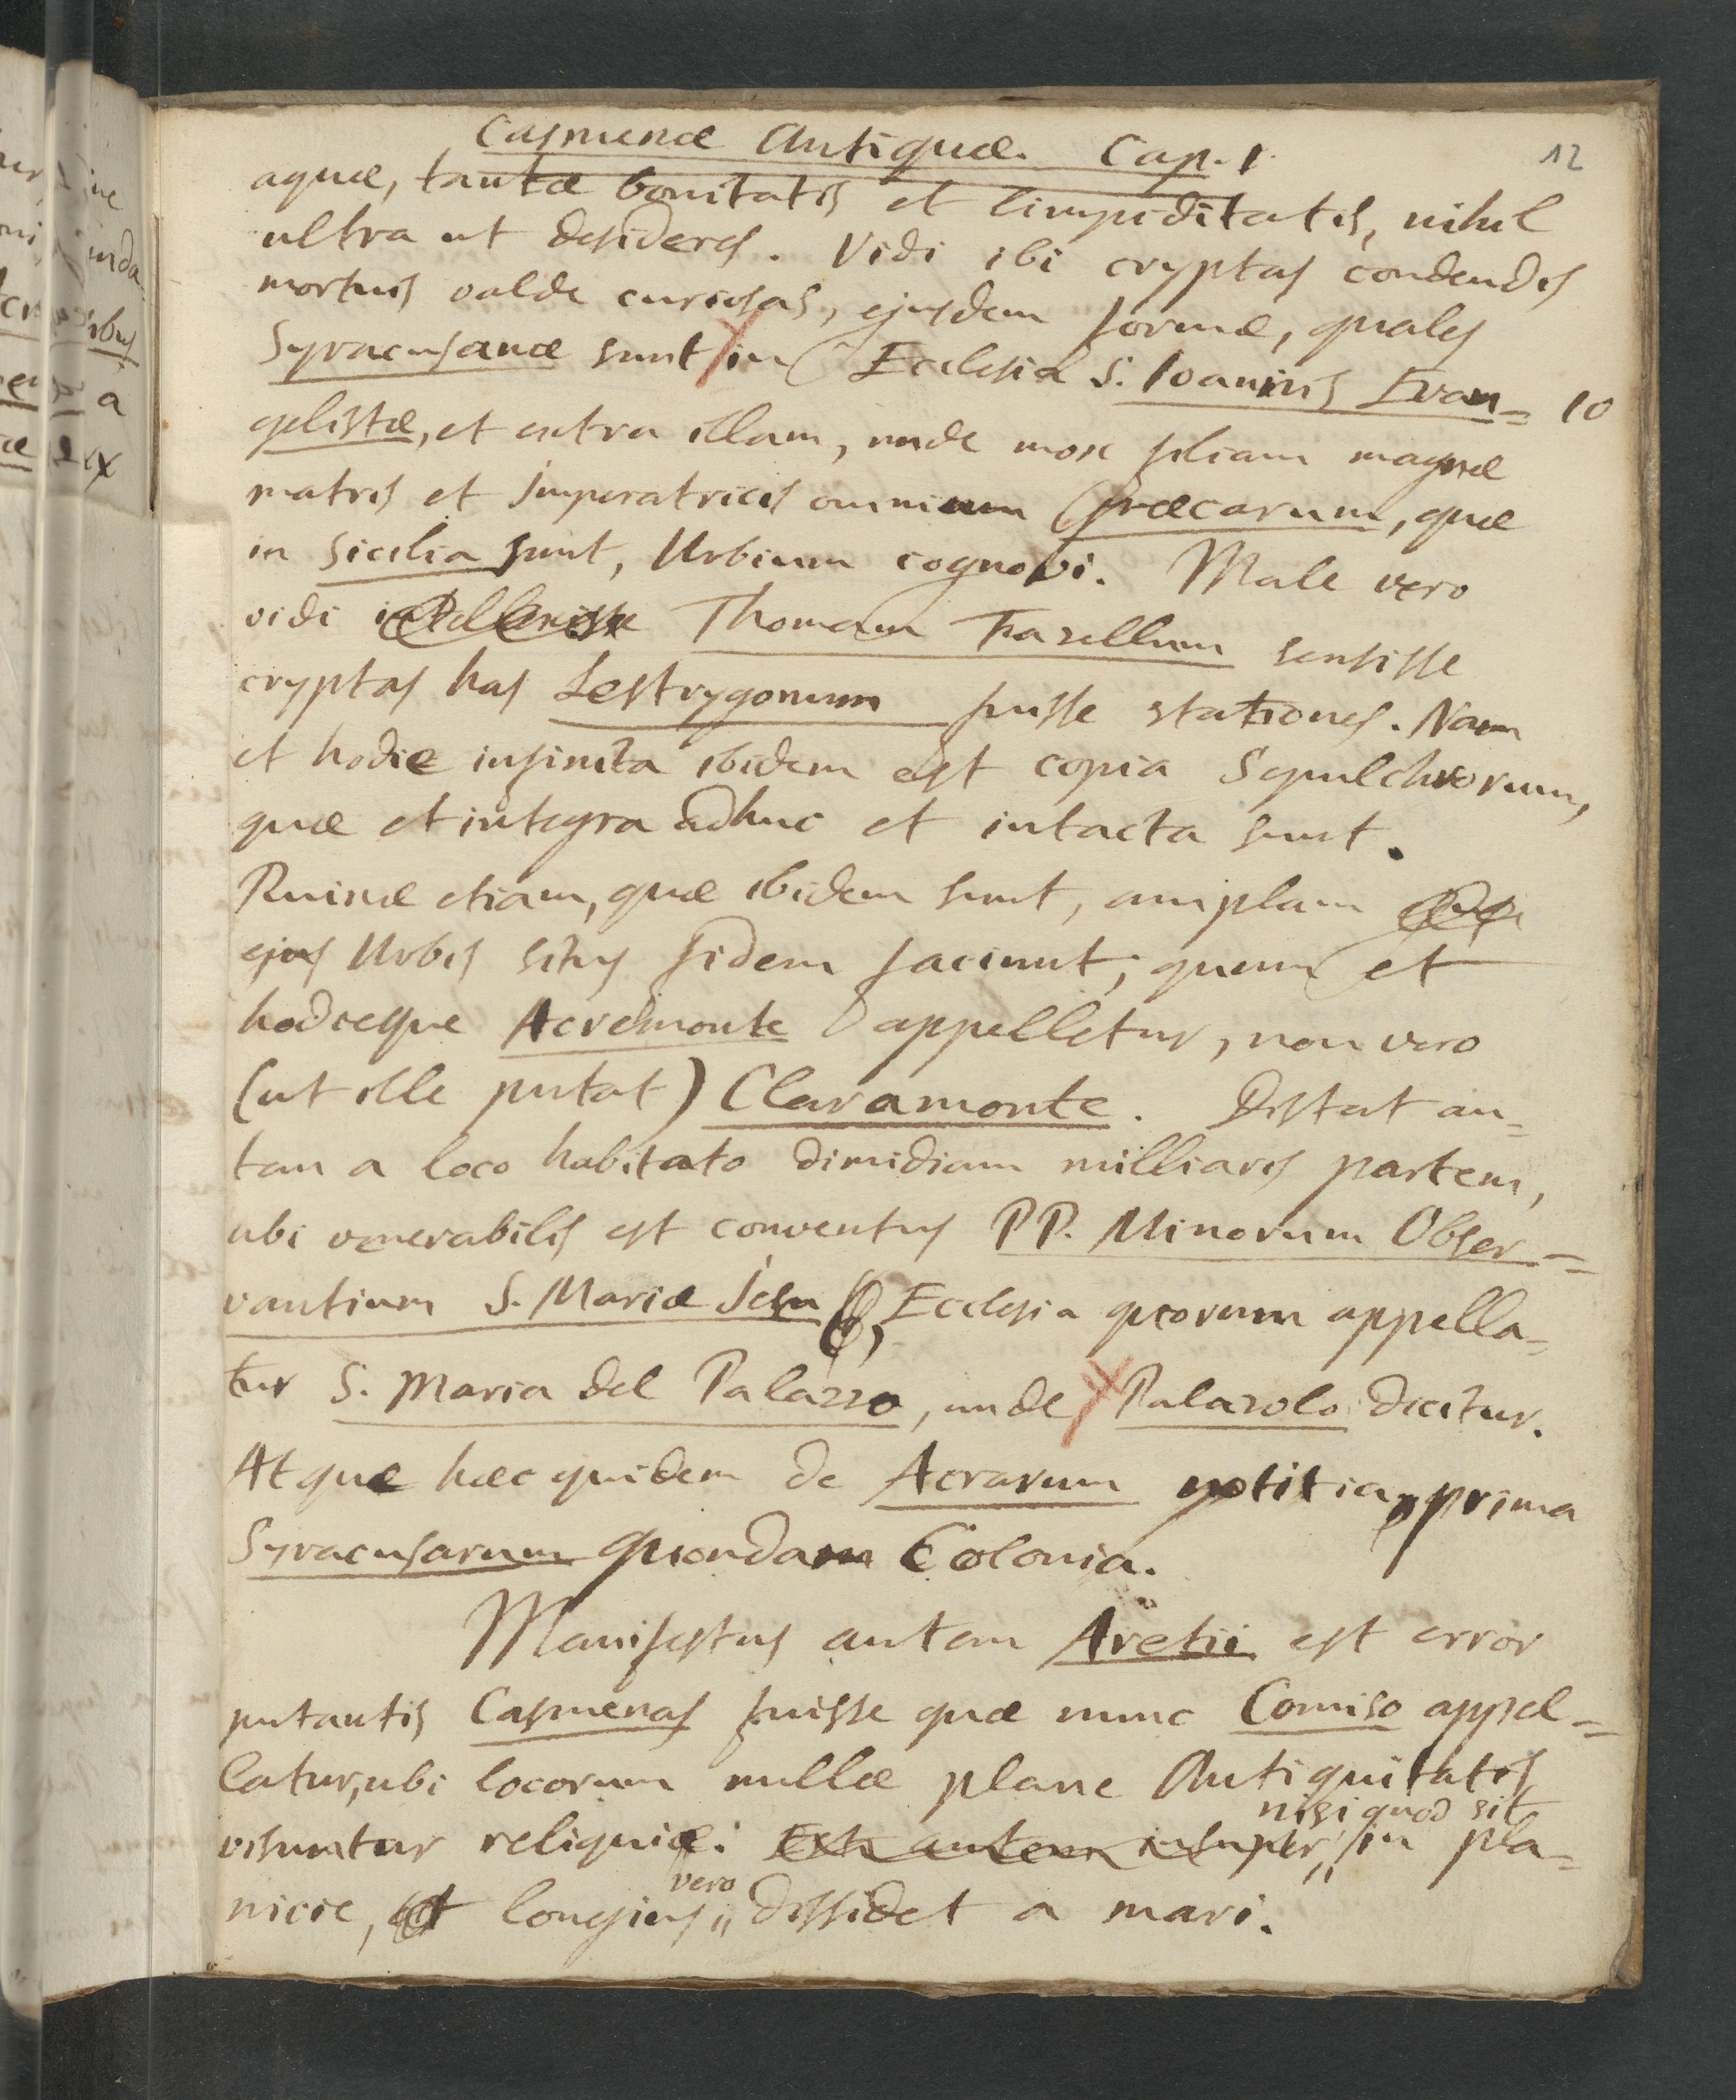 Casmenæ Antiquæ. Cap. 1.
12
aquæ, tantæ bonitatis et limpiditatis, nihil
ultra ut desideres. Vidi ibi cryptas condendis
mortuis valde curiosas, ejusdem formæ, quales
Syracusanæ sunt in Ecclesia S. Ioannis Evan=
10
gelistæ, et extra illam, unde mox filiam magnæ
matris et Imperatricis omnium Græcarum, quæ
in Sicilia sunt, Urbium cognovi. Male vero
vidi Thomam Fazellum sensisse
cryptas has Lestrygonum fuisse stationes. Nam
et hodie infinita ibidem est copia Sepulchrorum,
quæ et integra adhuc et intacta sunt.
Ruinæ etiam, quæ ibidem sunt, amplam
ejus Urbis situs fidem faciunt, quum et
hodieque Acremonte appelletur, non vero
(ut ille putat) Claramonte. Distat au=
tem a loco habitato dimidiam milliaris partem,
ubi venerabilis est conventus PP. Minorum Obser=
vantium S. Mariæ Jesu, Ecclesia quorum appella=
tur S. Maria del Palazzo, unde Palazolo dicitur.
Atque hæc quidem de Acrarum notitia, prima
Syracusarum quondam Colonia.
Manifestus autem Aretii est error
putantis Casmenas fuisse quæ nunc Comiso appel=
latur, ubi locorum nullæ plane Antiquitatis
nisi quod sit
visuntur reliquiæ: Est autem insuper, in pla=
vero
nicie, et longius dissidet a mari.